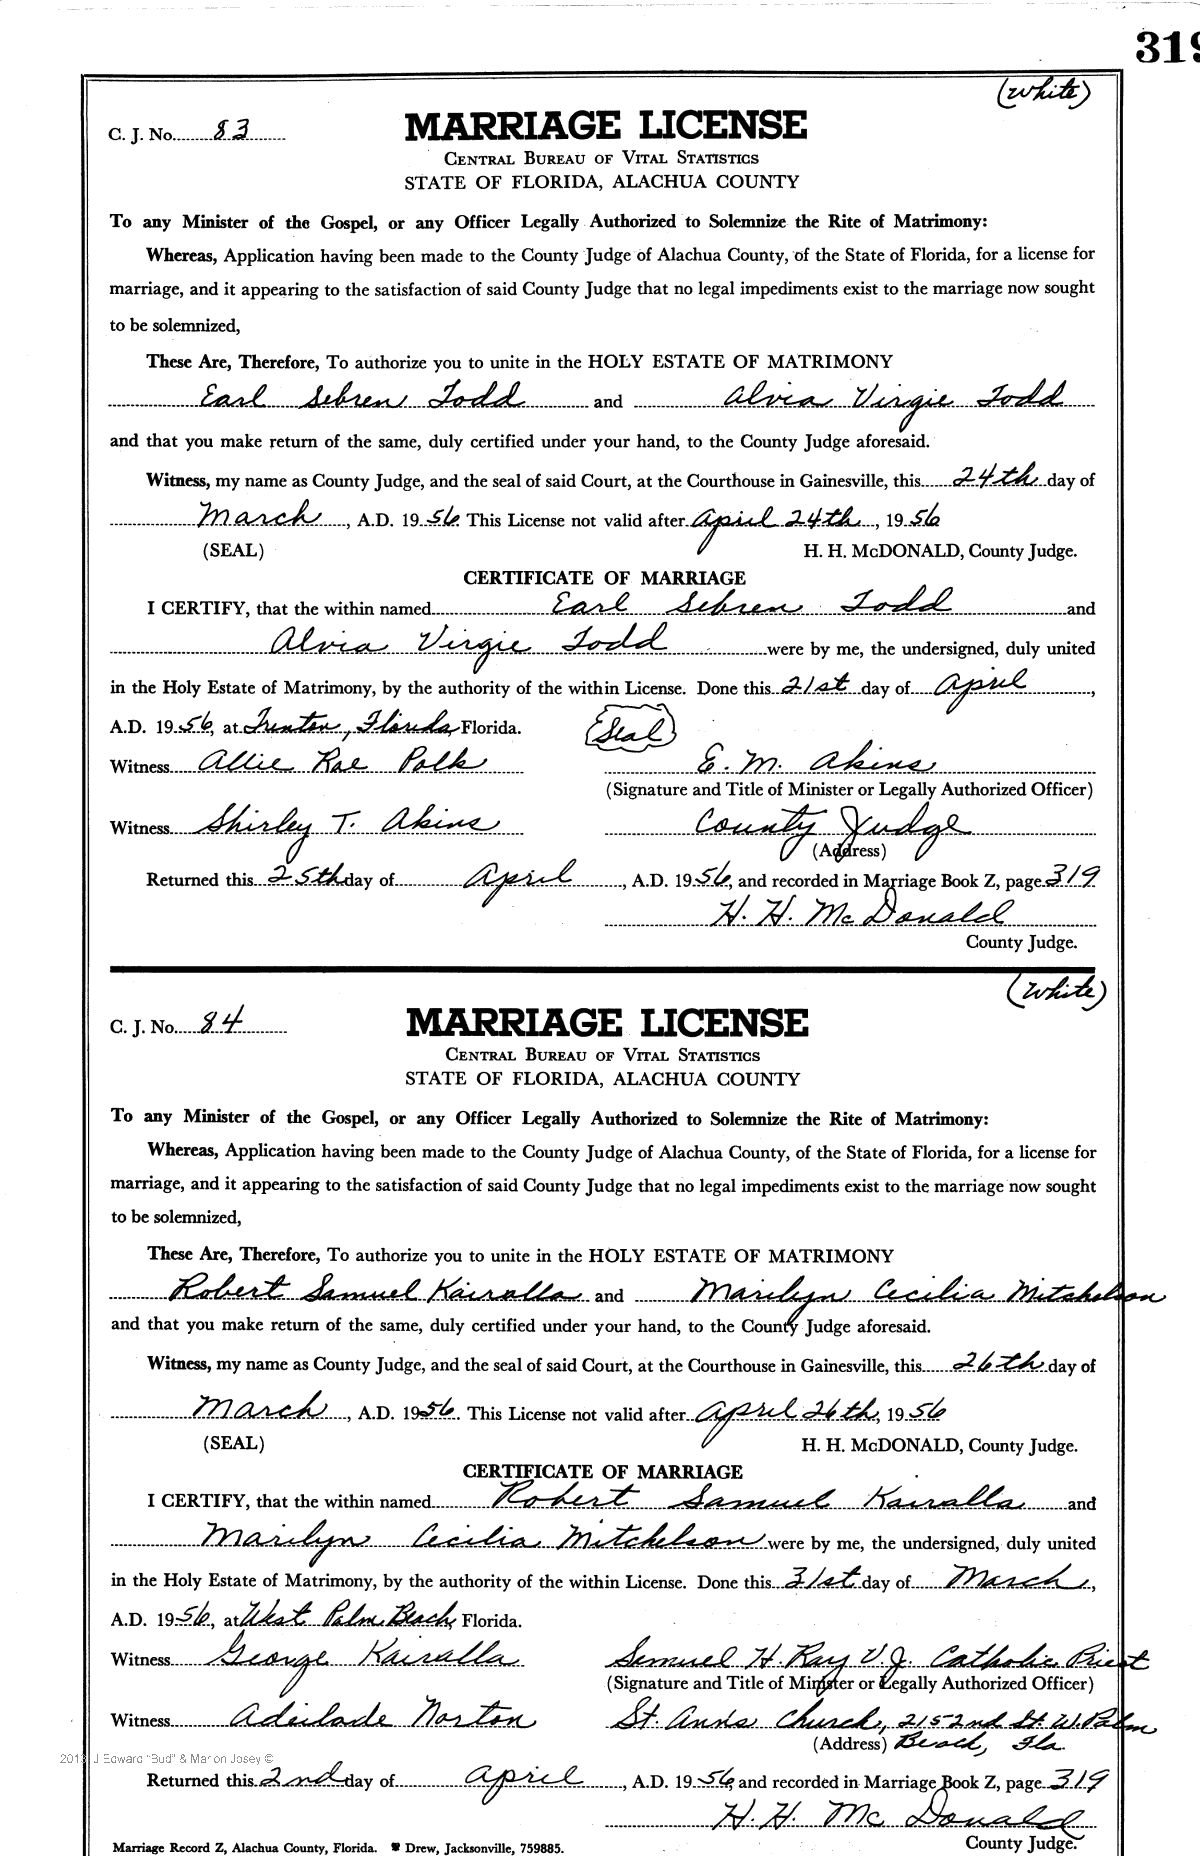 319
(White)
C. J. No. 83
MARRIAGE LICENSE
CENTRAL BUREAU OF VITAL STATISTICS
STATE OF FLORIDA, ALACHUA COUNTY
To any Minister of the Gospel, or any Officer Legally Authorized to Solemnize the Rite of Matrimony:
Whereas, Application having been made to the County Judge of Alachua County, of the State of Florida, for a license for
marriage, and it appearing to the satisfaction of said County Judge that no legal impediments exist to the marriage now sought
to be solemnized,
These Are, Therefore, To authorize you to unite in the HOLY ESTATE OF MATRIMONY
Earl Sebren Todd and Alvia Virgie Todd
and that you make return of the same, duly certified under your hand, to the County Judge aforesaid.
Witness, my name as County Judge, and the seal of said Court, at the Courthouse in Gainesville, this 24th day of
March, A.D. 1956. This License not valid after April 24th, 1956
(SEAL) H. H. McDONALD, County Judge.
CERTIFICATE OF MARRIAGE
I CERTIFY, that the within named Earl Sebren Todd and
Alvia Virgie Todd were by me, the undersigned, duly united
in the Holy Estate of Matrimony, by the authority of the within License. Done this 21st day of April,
A.D. 1956, at Trenton, Florida, Florida. (Seal)
Witness Allie Rae Polk E. M. Akins
(Signature and Title of Minister or Legally Authorized Officer)
Witness Shirley T. Akins County Judge
(Address)
Returned this 25th day of April, A.D. 1956, and recorded in Marriage Book Z, page 319
H. H. McDonald
County Judge.
(White)
C. J. No. 84
MARRIAGE LICENSE
CENTRAL BUREAU OF VITAL STATISTICS
STATE OF FLORIDA, ALACHUA COUNTY
To any Minister of the Gospel, or any Officer Legally Authorized to Solemnize the Rite of Matrimony:
Whereas, Application having been made to the County Judge of Alachua County, of the State of Florida, for a license for
marriage, and it appearing to the satisfaction of said County Judge that no legal impediments exist to the marriage now sought
to be solemnized,
These Are, Therefore, To authorize you to unite in the HOLY ESTATE OF MATRIMONY
Robert Samuel Kairalla and Marilyn Cecilia Mitchelson
and that you make return of the same, duly certified under your hand, to the County Judge aforesaid.
Witness, my name as County Judge, and the seal of said Court, at the Courthouse in Gainesville, this 26th day of
March, A.D. 1956. This License not valid after April 26th, 1956
(SEAL) H. H. McDONALD, County Judge.
CERTIFICATE OF MARRIAGE
I CERTIFY, that the within named Robert Samuel Kairalla and
Marilyn Cecilia Mitchelson were by me, the undersigned, duly united
in the Holy Estate of Matrimony, by the authority of the within License. Done this 31st day of March,
A.D. 1956, at West Palm Beach, Florida.
Witness George Kairalla Semuel H. Ray V.J. Catholic Priest
(Signature and Title of Minister or Legally Authorized Officer)
Witness Adeilade Norton St. Ann's Church, 215 2nd St. W. Palm
(Address) Beach, Fla.
2013 J Edward "Bud" & Marion Josey ©
Returned this 2nd day of April, A.D. 1956, and recorded in Marriage Book Z, page 319
H. H. McDonald
County Judge.
Marriage Record Z, Alachua County, Florida. Drew, Jacksonville, 759885.